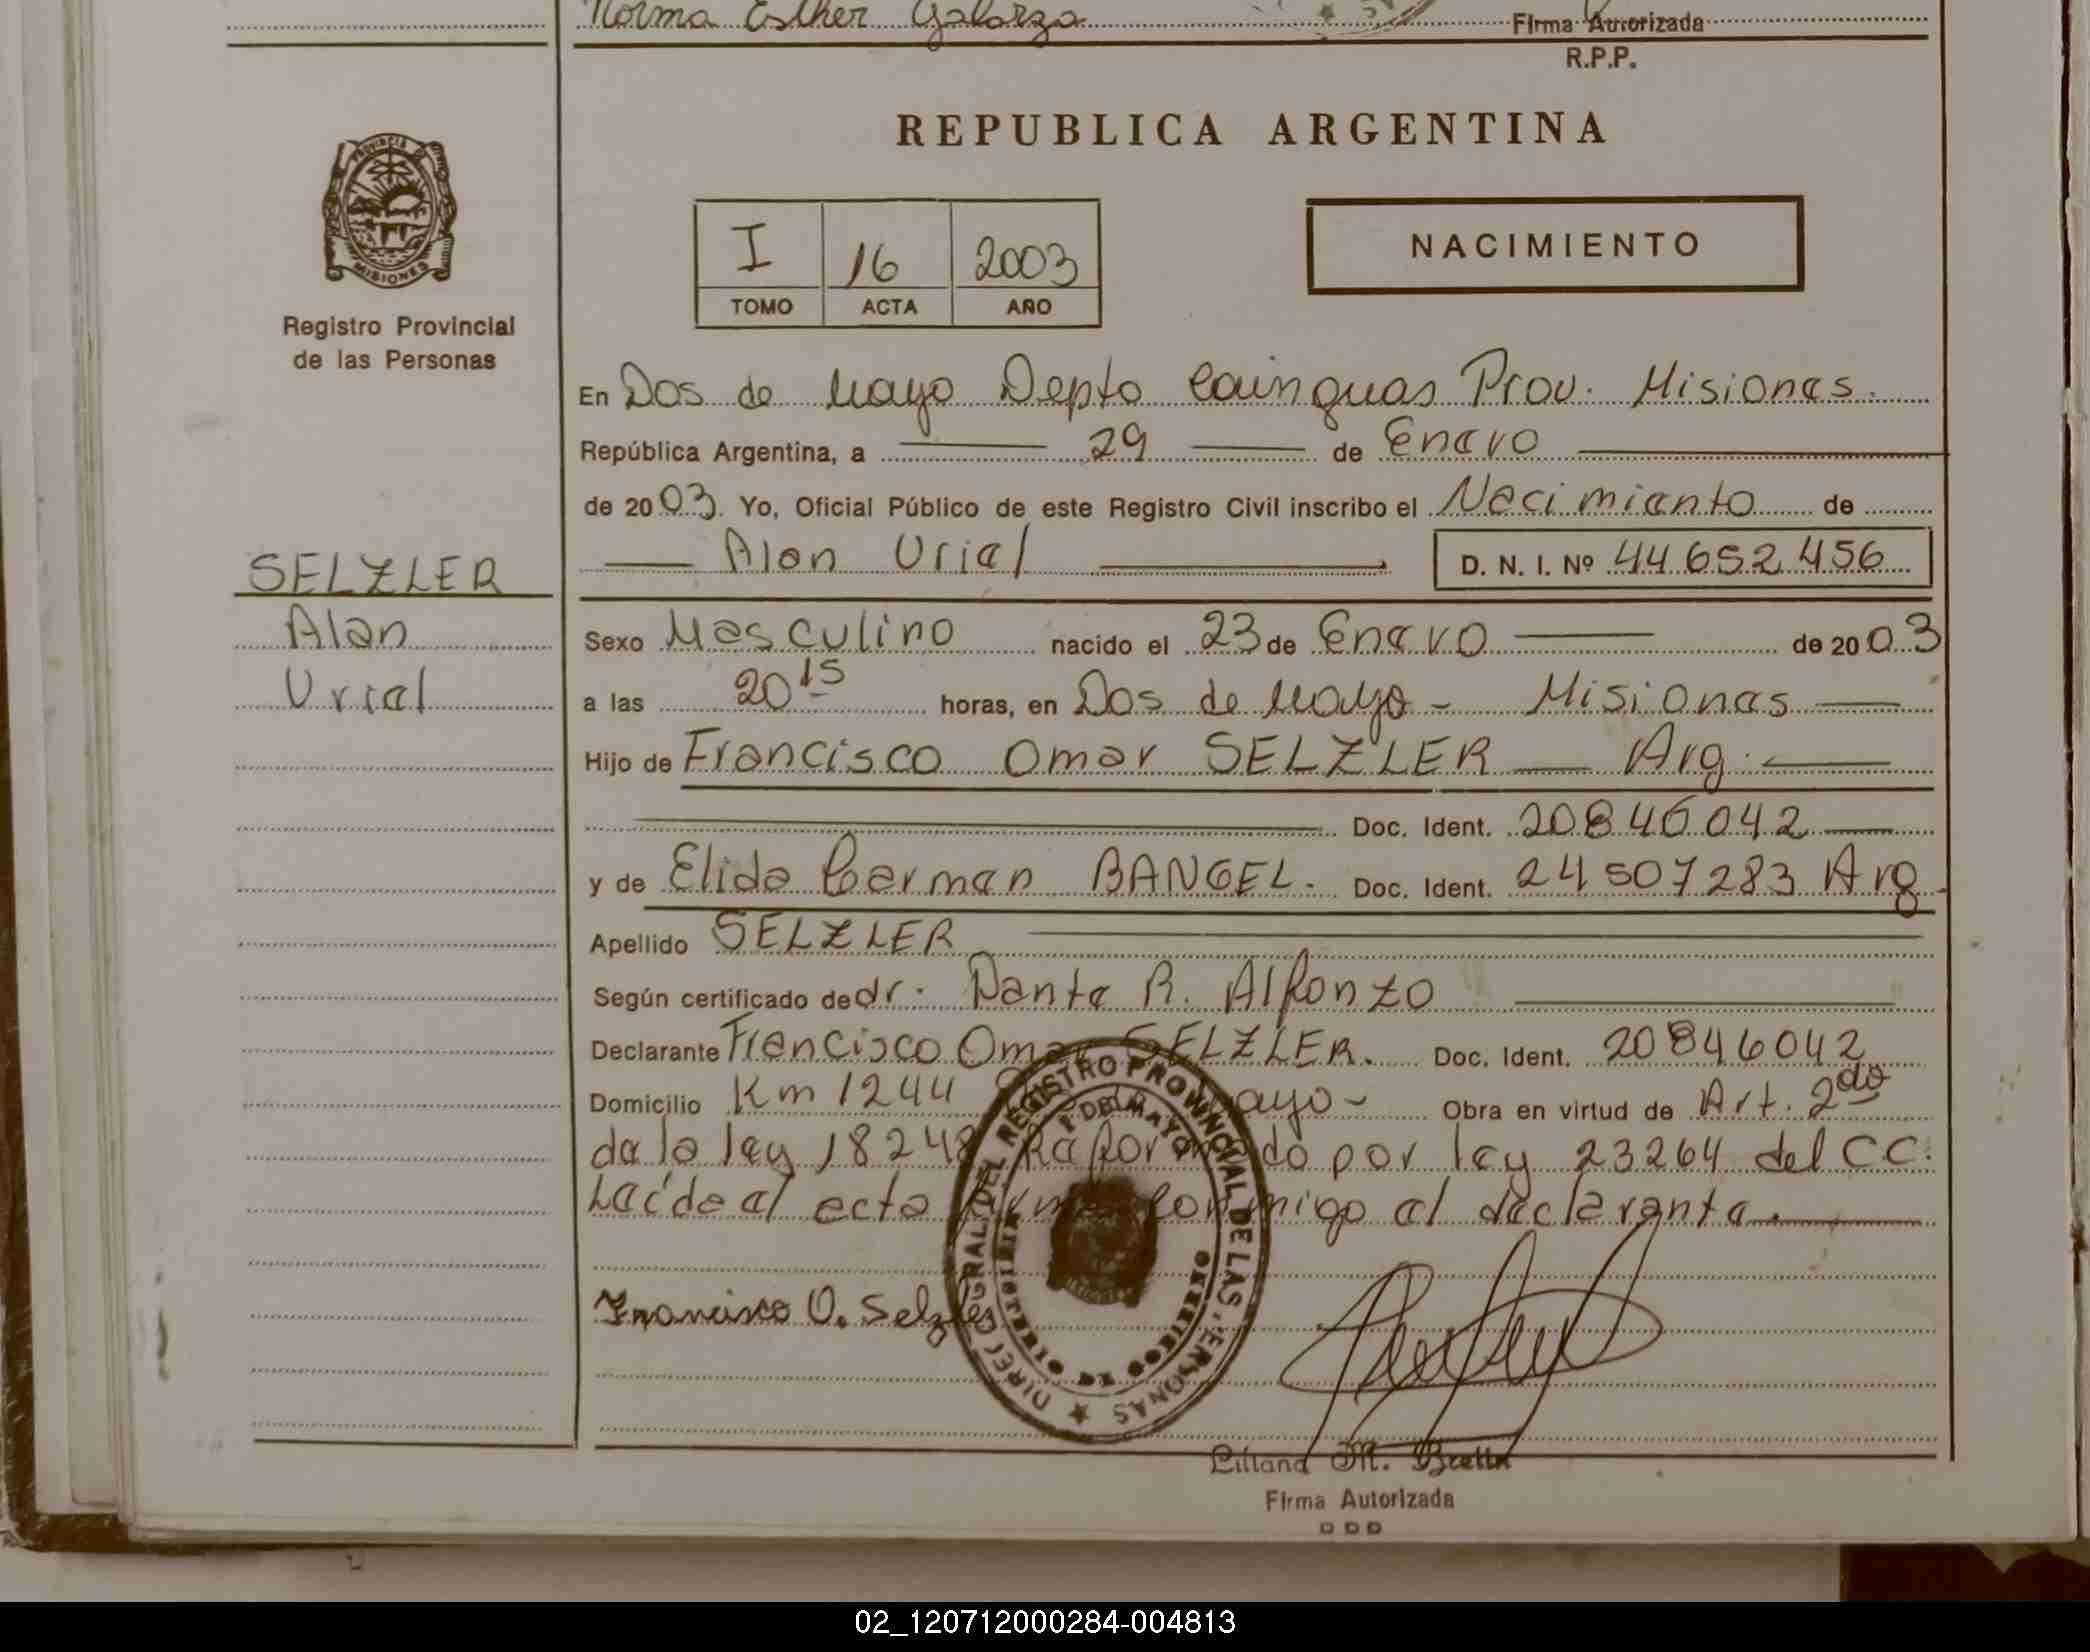 Norma Esther Galarza
Firma Autorizada
R.P.P.
PROVINCIA DE
MISIONES
Registro Provincial
de las Personas
REPUBLICA ARGENTINA
I 16 2003
TOMO ACTA AÑO
NACIMIENTO
En Dos de Mayo Depto Cainguas Prov. Misiones.
República Argentina, a 29 de Enero
de 2003. Yo, Oficial Público de este Registro Civil inscribo el Nacimiento de
Alan Uriel D. N. I. Nº 44652456
SELZLER
Alan
Uriel
Sexo Masculino nacido el 23 de Enero de 2003
a las 20 15 horas, en Dos de Mayo - Misiones
Hijo de Francisco Omar SELZLER Arg.
Doc. Ident. 20846042
y de Elida Carmen BANGEL. Doc. Ident. 24507283 Arg.
Apellido SELZLER
Según certificado de dr. Dante R. Alfonzo
Declarante Francisco Omar SELZLER. Doc. Ident. 20846042
Domicilio Km 1244 Mayo - Obra en virtud de Art. 2do
de la ley 18248 Reformado por ley 23264 del CC.
Leída el acta firma conmigo el declarante.
Francisco O. Selzler
REGISTRO PROVINCIAL DE LAS PERSONAS
Liliana M.
Firma Autorizada
02_120712000284-004813